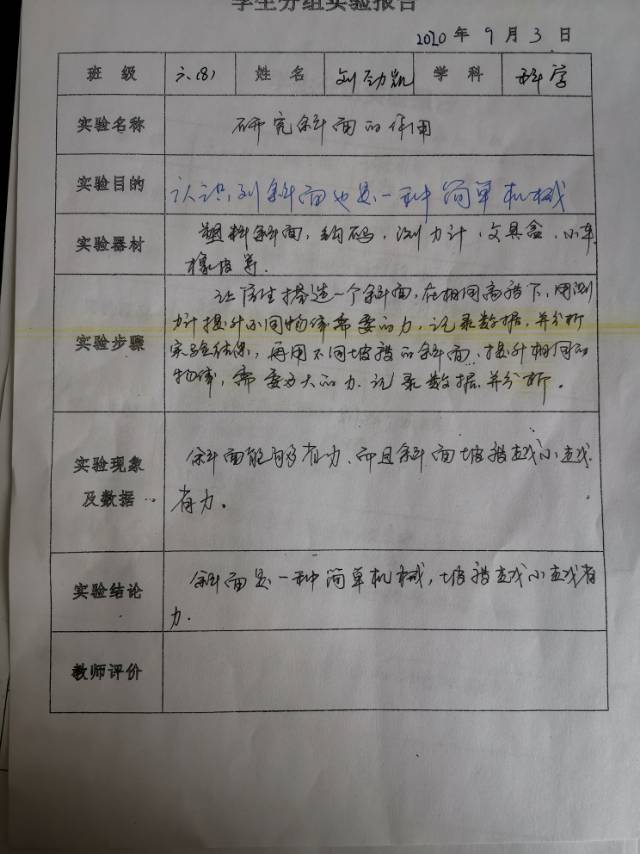 学生分组实验报告
2020 年 9 月 3 日
班 级 六(8) 姓 名 刘劲凯 学 科 科学
实验名称 研究斜面的作用
实验目的 认识到斜面也是一种简单机械
实验器材 塑料斜面,钩码,测力计,文具盒,小车
橡皮等.
实验步骤 让学生搭造一个斜面,在相同高程下,用测
力计提升不同物体需要的力,记录数据,并分析
实验结果,再用不同坡程的斜面,提升相同的
物体,需要多大的力.记录数据.并分析.
实验现象
及数据 斜面能够省力.而且斜面坡程越小越
省力.
实验结论 斜面是一种简单机械,坡程越小越省
力.
教师评价